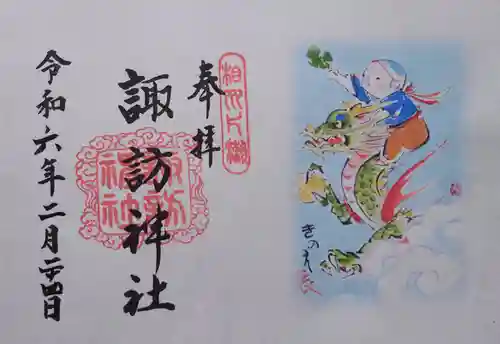 奉拝
諏訪神社
令和六年二月二十四日
諏訪神社
きのえ辰